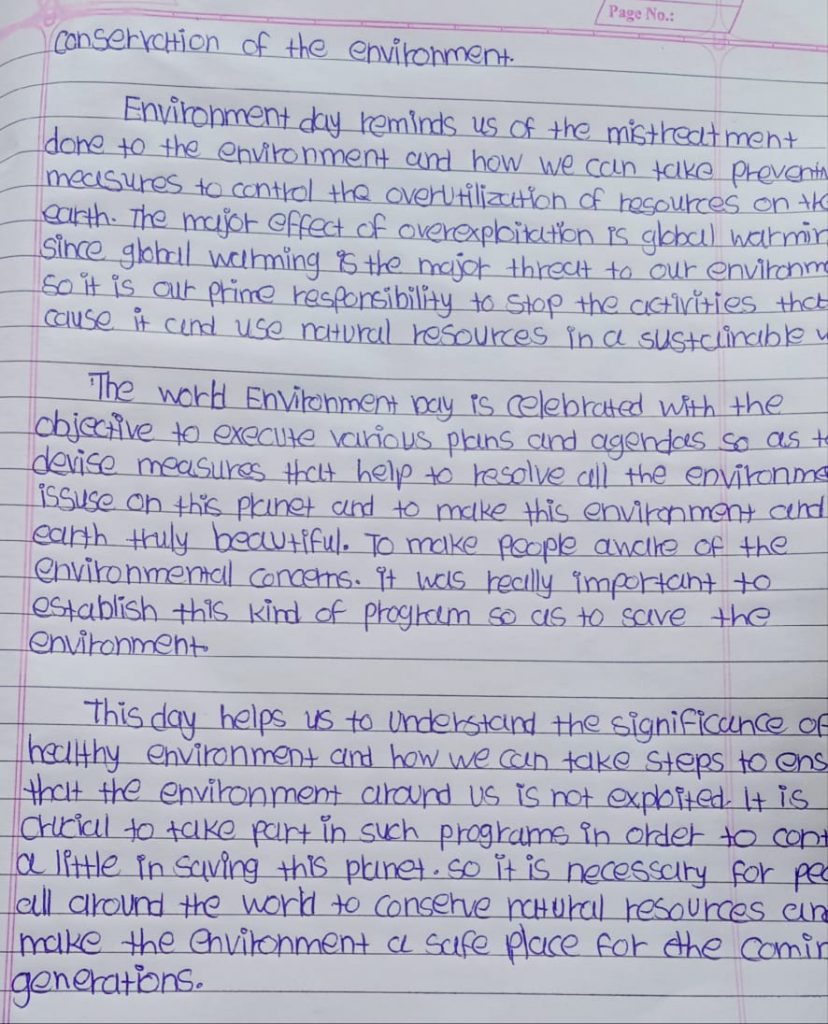 Page No.:
conservation of the environment.
Environment day reminds us of the mistreatment
done to the environment and how we can take preventi
measures to control the overutilization of resources on the
earth. The major effect of overexploitation is global warmin
since global warming is the major threat to our environm
so it is our prime responsibility to stop the activities that
cause it and use natural resources in a sustainable w
The world Environment Day is celebrated with the
objective to execute various plans and agendas so as to
devise measures that help to resolve all the environme
issuse on this planet and to make this environment and
earth truly beautiful. To make people aware of the
environmental concerns. it was really important to
establish this kind of program so as to save the
environment.
This day helps us to understand the significance of
healthy environment and how we can take steps to ens
that the environment around us is not exploited. It is
crucial to take part in such programs in order to cont
a little in saving this planet. so it is necessary for peo
all around the world to conserve natural resources an
make the environment a safe place for the comin
generations.